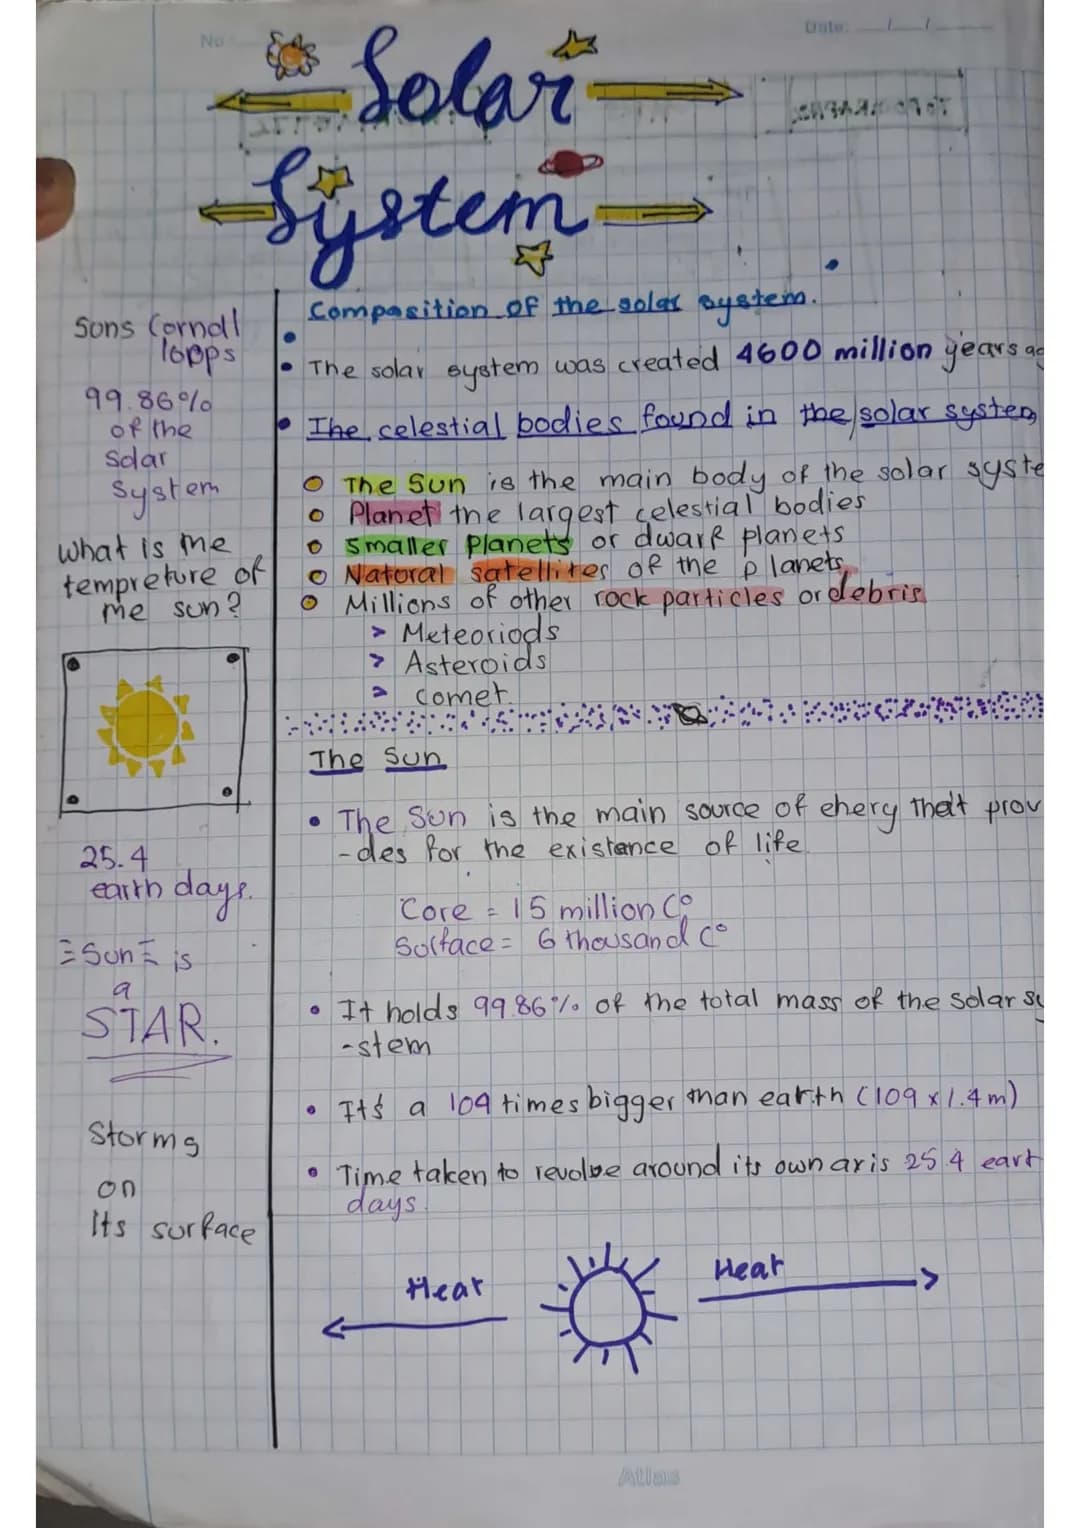 No
Date:
Solar
System
Sons Corndl
lopps
99.86%
of the
Solar
System
what is the
tempreture of
the sun?
25.4
earth days.
Sun is
a
STAR.
Storms
on
Its surface
Composition of the solar system.
The solar system was created 4600 million years ag
The celestial bodies found in the solar system
The Sun is the main body of the solar syste
Planet the largest celestial bodies
Smaller planets or dwarf planets
Natural satellites of the planets
Millions of other rock particles or debris
> Meteoriods
> Asteroids
> comet
The Sun
The Sun is the main source of enery that prov
-des for the existence of life.
Core = 15 million C°
Surface = 6 thousand C°
It holds 99.86% of the total mass of the solar sy
-stem
It's a 109 times bigger than earth (109 x 1.4m)
Time taken to revolve around its own axis 25.4 eart
days.
Heat
Heat
Atlas